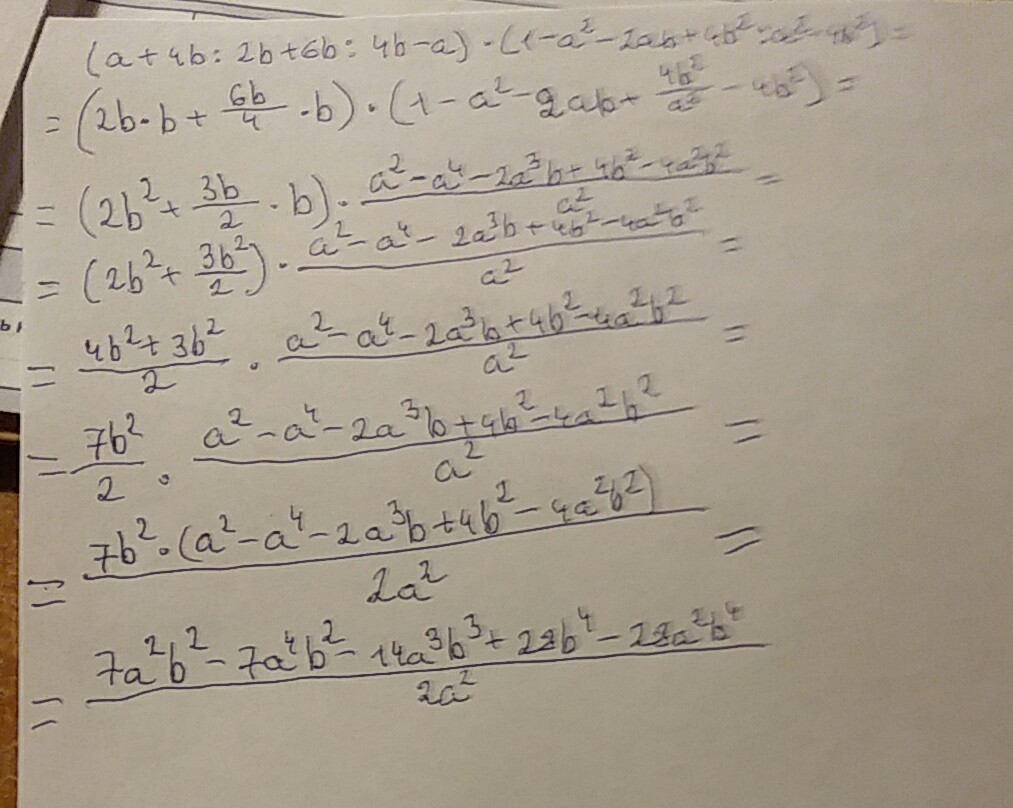 (a+4b:2b+6b:4b-a)·(1-a²-2ab+4b²:a²-4b²)=
=(2b·b+\frac{6b}{4}·b)·(1-a²-2ab+\frac{4b²}{a²}-4b²)=
=(2b²+\frac{3b}{2}·b)·\frac{a²-a⁴-2a³b+4b²-4a²b²}{a²}=
=(2b²+\frac{3b²}{2})·\frac{a²-a⁴-2a³b+4b²-4a²b²}{a²}=
=\frac{4b²+3b²}{2}·\frac{a²-a⁴-2a³b+4b²-4a²b²}{a²}=
=\frac{7b²}{2}·\frac{a²-a⁴-2a³b+4b²-4a²b²}{a²}=
=\frac{7b²·(a²-a⁴-2a³b+4b²-4a²b²)}{2a²}=
=\frac{7a²b²-7a⁴b²-14a³b³+28b⁴-28a²b⁴}{2a²}